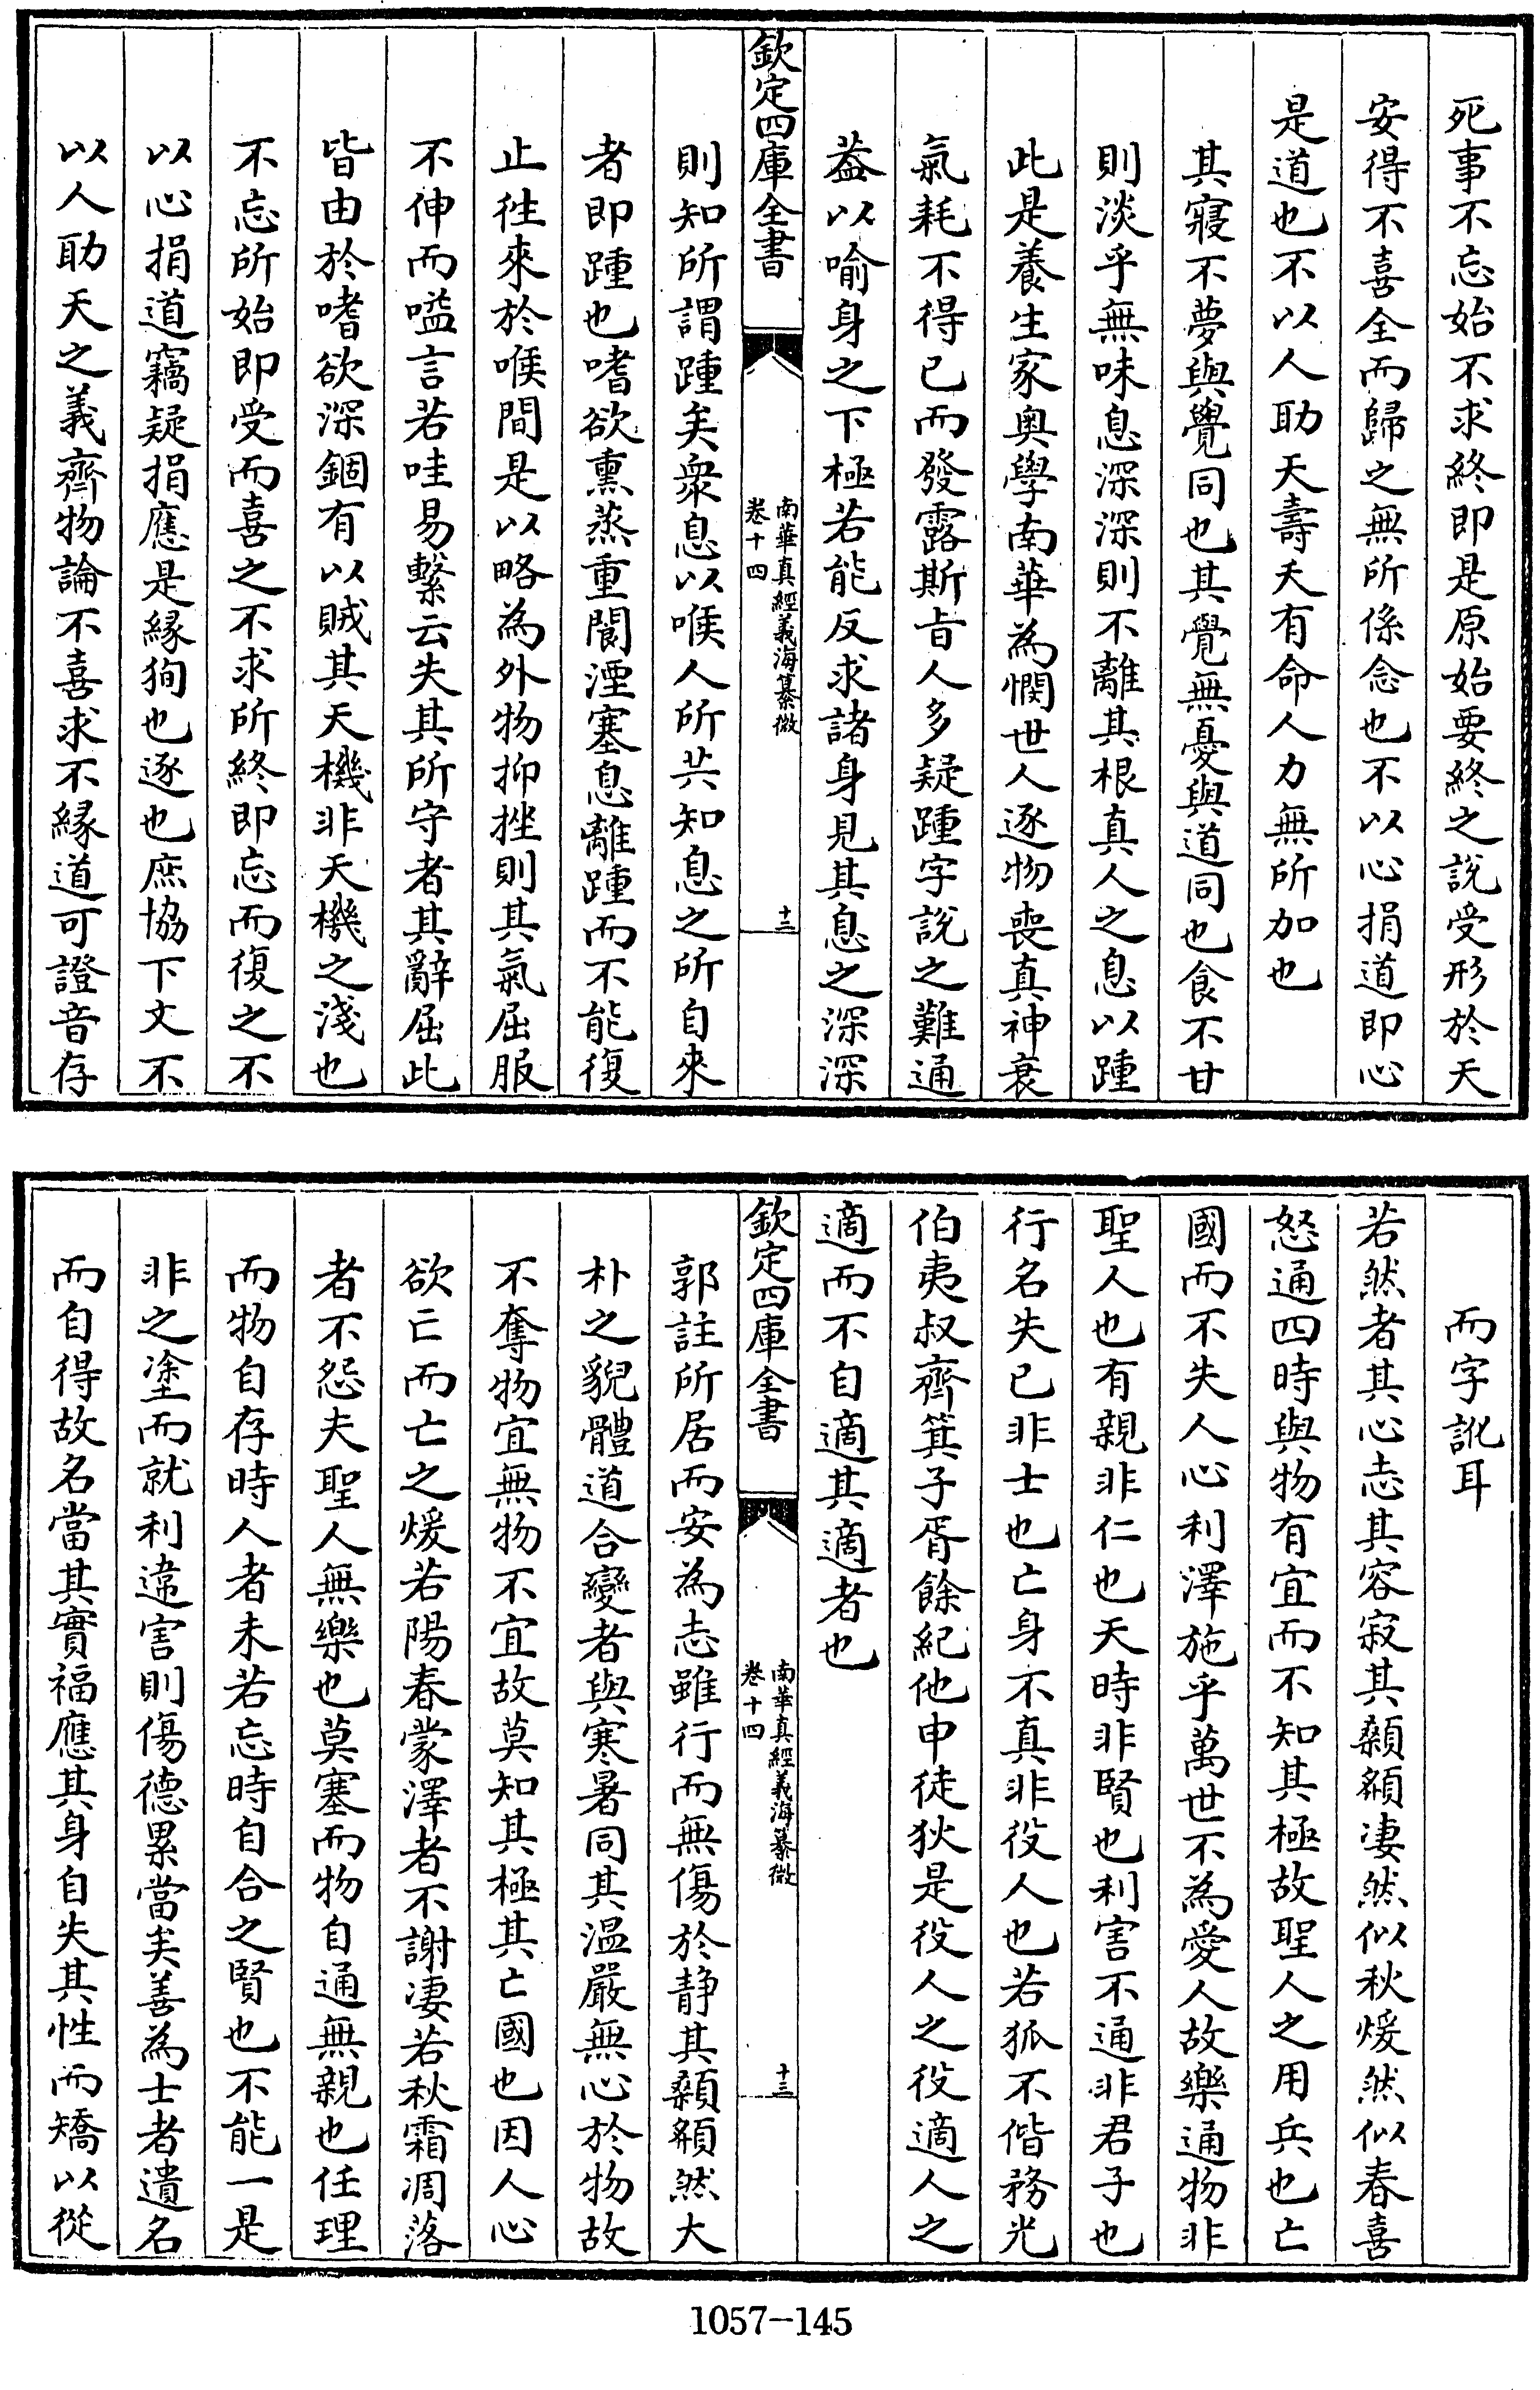 死事不忘始不求終即是原始要終之說受形於天
安得不喜全而歸之無所係念也不以心捐道即心
是道也不以人助天壽夭有命人力無所加也
其寢不夢與覺同也其覺無憂與道同也食不甘
則淡乎無味息深深則不離其根真人之息以踵
此是養生家奥學南華為憫世人逐物喪真神衰
氣耗不得已而發露斯旨人多疑踵字說之難通
葢以喻身之下極若能反求諸身見其息之深深
欽定四庫全書
南華真經義海纂微
卷十四
十二
則知所謂踵矣衆息以喉人所共知息之所自來
者即踵也嗜欲熏蒸重閬湮塞息離踵而不能復
止徃來於喉間是以略為外物抑挫則其氣屈服
不伸而嗌言若哇易繫云失其所守者其辭屈此
皆由於嗜欲深錮有以賊其天機非天機之淺也
不忘所始即受而喜之不求所終即忘而復之不
以心捐道竊疑捐應是緣狥也逐也庶協下文不
以人助天之義齊物論不喜求不緣道可證音存
而字訛耳
若然者其心志其容寂其顙頯凄然似秋煖然似春喜
怒通四時與物有宜而不知其極故聖人之用兵也亡
國而不失人心利澤施乎萬世不為愛人故樂通物非
聖人也有親非仁也天時非賢也利害不通非君子也
行名失已非士也亡身不真非役人也若狐不偕務光
伯夷叔齊箕子胥餘紀他申徒狄是役人之役適人之
適而不自適其適者也
欽定四庫全書
南華真經義海纂微
卷十四
十三
郭註所居而安為志雖行而無傷於静其顙頯然大
朴之貌體道合變者與寒暑同其温嚴無心於物故
不奪物宜無物不宜故莫知其極其亡國也因人心
欲亡而亡之煖若陽春蒙澤者不謝凄若秋霜凋落
者不怨夫聖人無樂也莫塞而物自通無親也任理
而物自存時人者未若忘時自合之賢也不能一是
非之塗而就利違害則傷德累當矣善為士者遺名
而自得故名當其實福應其身自失其性而矯以從
1057-145